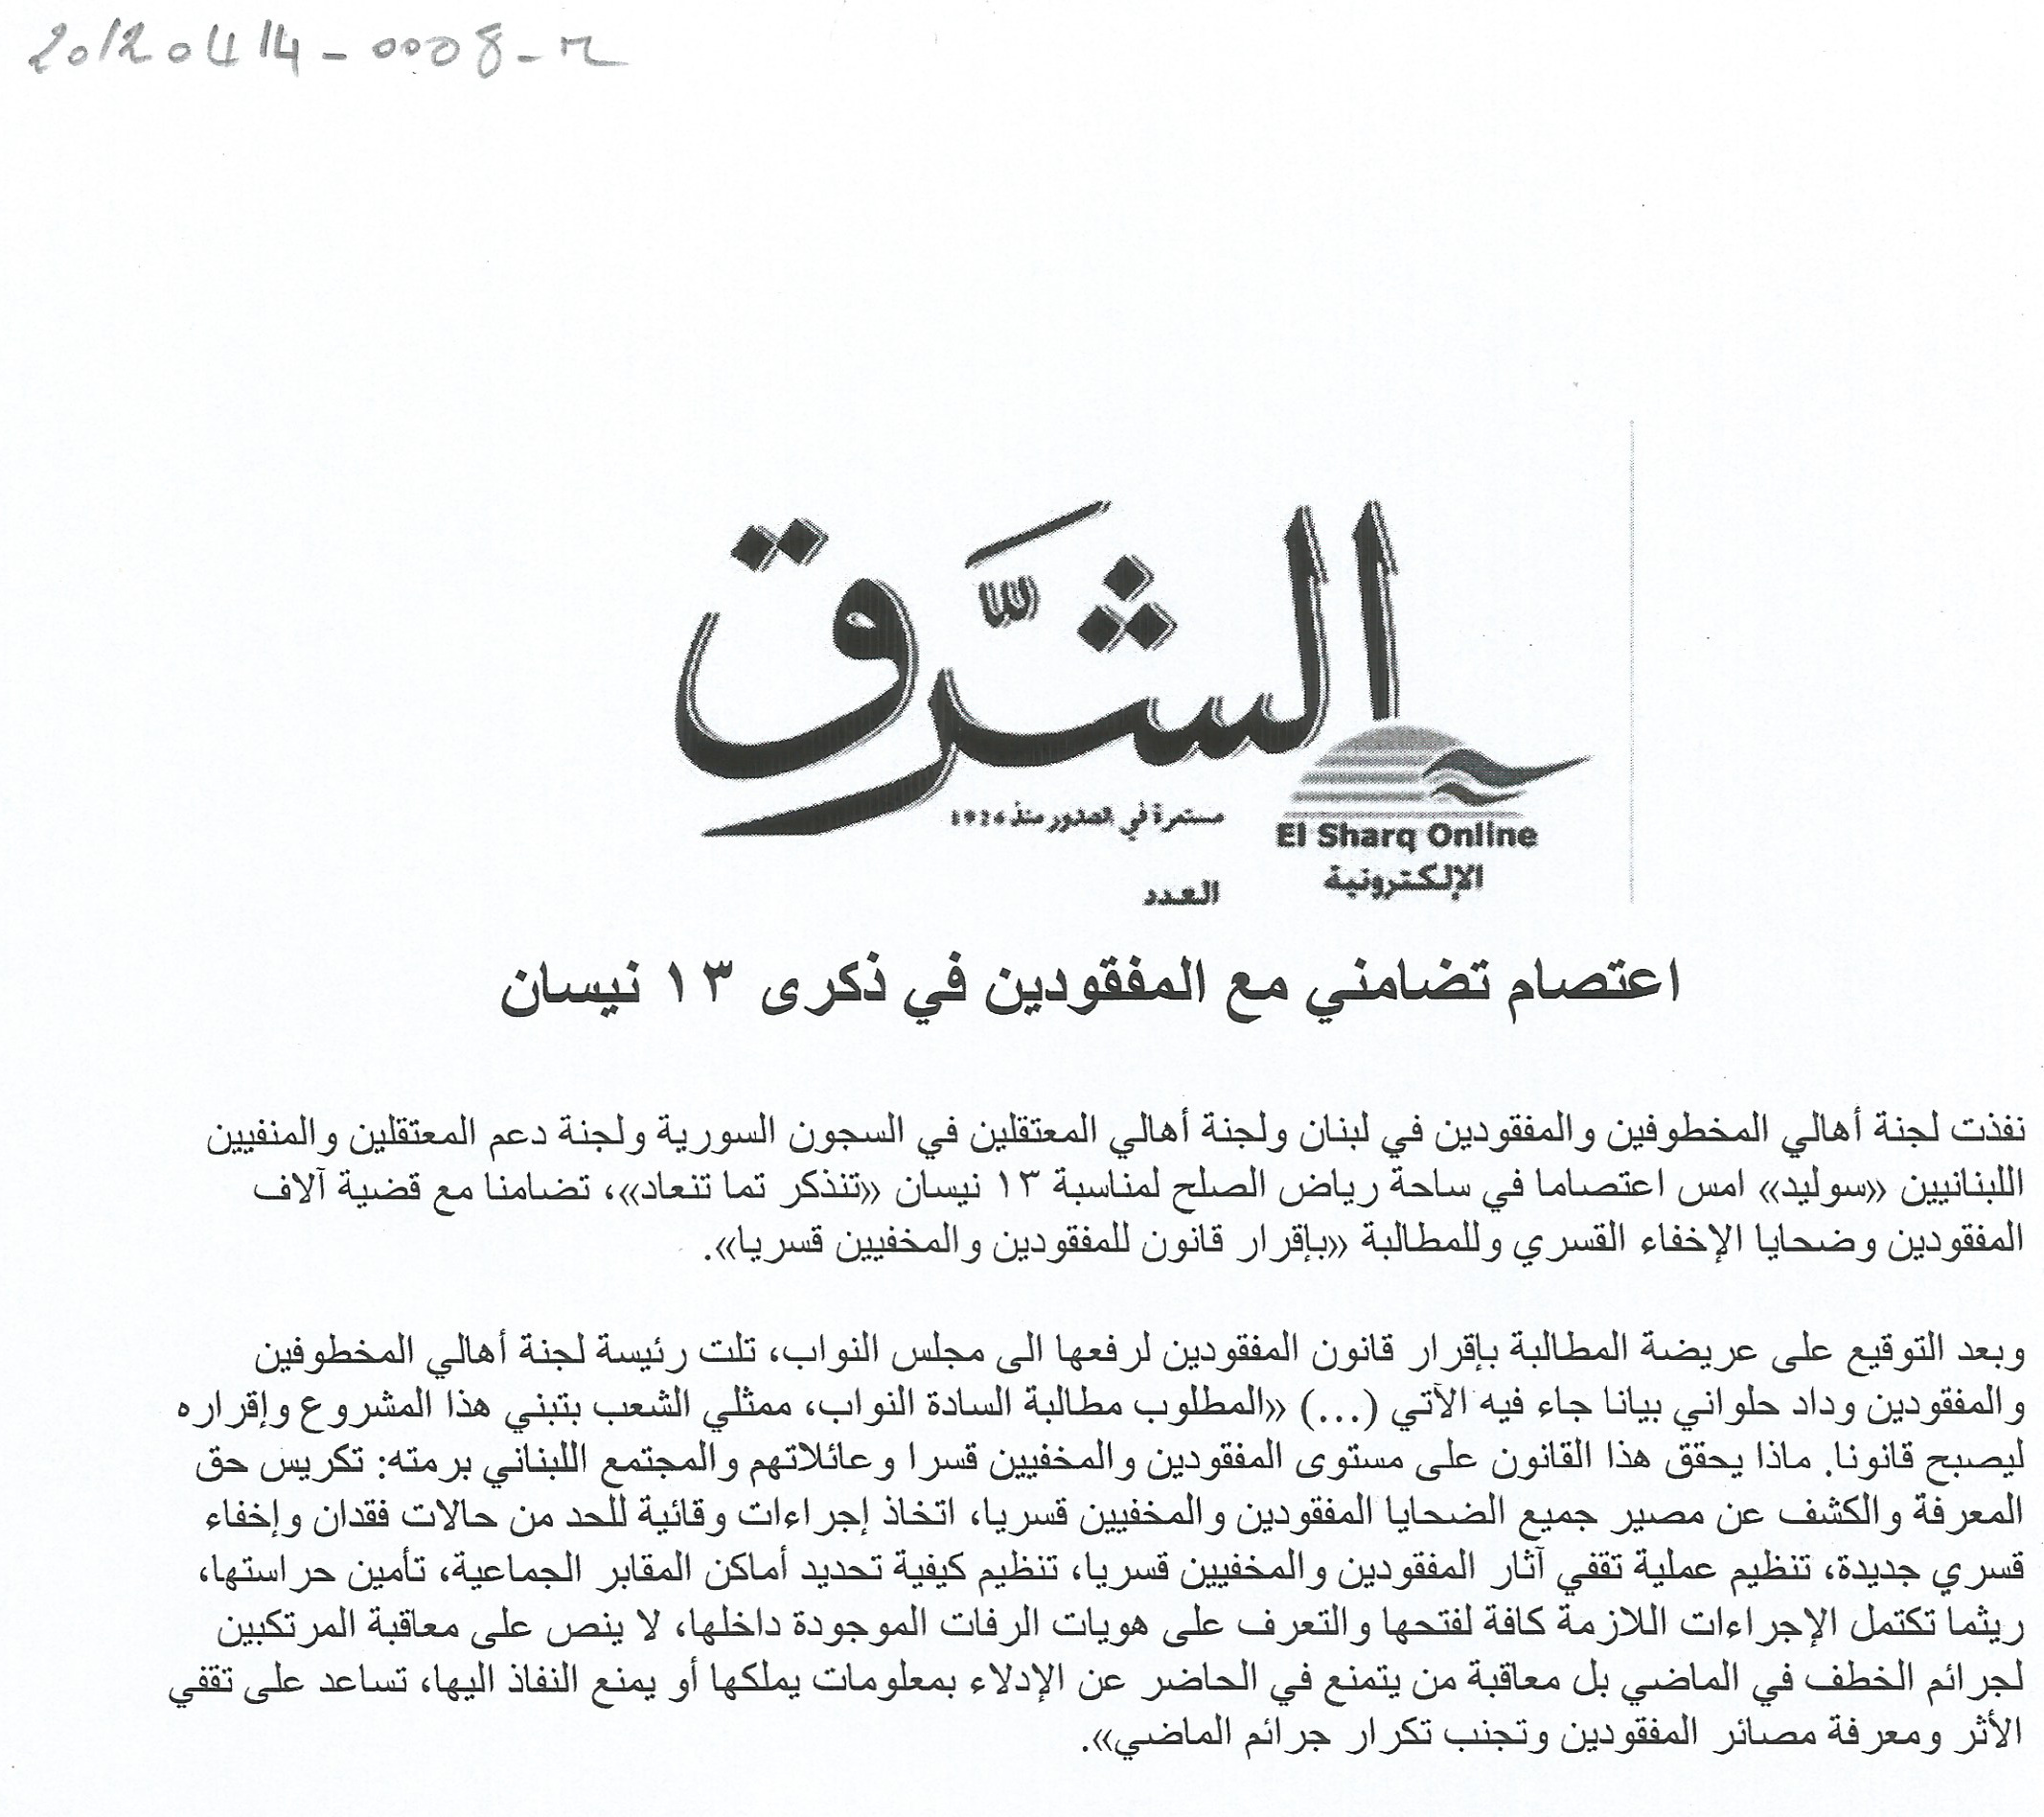 20120414-0008-r
الشرق
مستمرة في الصدور منذ 1926
El Sharq Online
الإلكترونية
العدد
اعتصام تضامني مع المفقودين في ذكرى ١٣ نيسان
نفذت لجنة أهالي المخطوفين والمفقودين في لبنان ولجنة أهالي المعتقلين في السجون السورية ولجنة دعم المعتقلين والمنفيين
اللبنانيين «سوليد» امس اعتصاما في ساحة رياض الصلح لمناسبة ١٣ نيسان «تنذكر تما تنعاد»، تضامنا مع قضية آلاف
المفقودين وضحايا الإخفاء القسري وللمطالبة «بإقرار قانون للمفقودين والمخفيين قسريا».
وبعد التوقيع على عريضة المطالبة بإقرار قانون المفقودين لرفعها الى مجلس النواب، تلت رئيسة لجنة أهالي المخطوفين
والمفقودين وداد حلواني بيانا جاء فيه الآتي (...) «المطلوب مطالبة السادة النواب، ممثلي الشعب بتبني هذا المشروع وإقراره
ليصبح قانونا. ماذا يحقق هذا القانون على مستوى المفقودين والمخفيين قسرا وعائلاتهم والمجتمع اللبناني برمته: تكريس حق
المعرفة والكشف عن مصير جميع الضحايا المفقودين والمخفيين قسريا، اتخاذ إجراءات وقائية للحد من حالات فقدان وإخفاء
قسري جديدة، تنظيم عملية تقفي آثار المفقودين والمخفيين قسريا، تنظيم كيفية تحديد أماكن المقابر الجماعية، تأمين حراستها،
ريثما تكتمل الإجراءات اللازمة كافة لفتحها والتعرف على هويات الرفات الموجودة داخلها، لا ينص على معاقبة المرتكبين
لجرائم الخطف في الماضي بل معاقبة من يتمنع في الحاضر عن الإدلاء بمعلومات يملكها أو يمنع النفاذ اليها، تساعد على تقفي
الأثر ومعرفة مصائر المفقودين وتجنب تكرار جرائم الماضي».